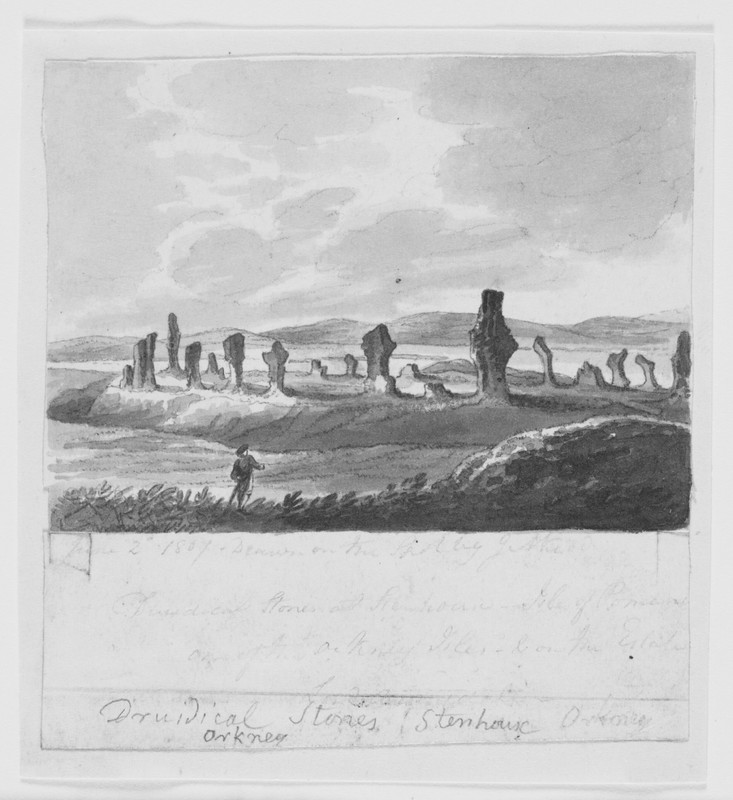 June 2d 1807 - Drawn on the spot by
Druidical Stones at Stenhouse - Isle of Pomona
one of the Orkney Isles - & on the Estate
Druidical Stones Stenhouse Orkney
Orkney